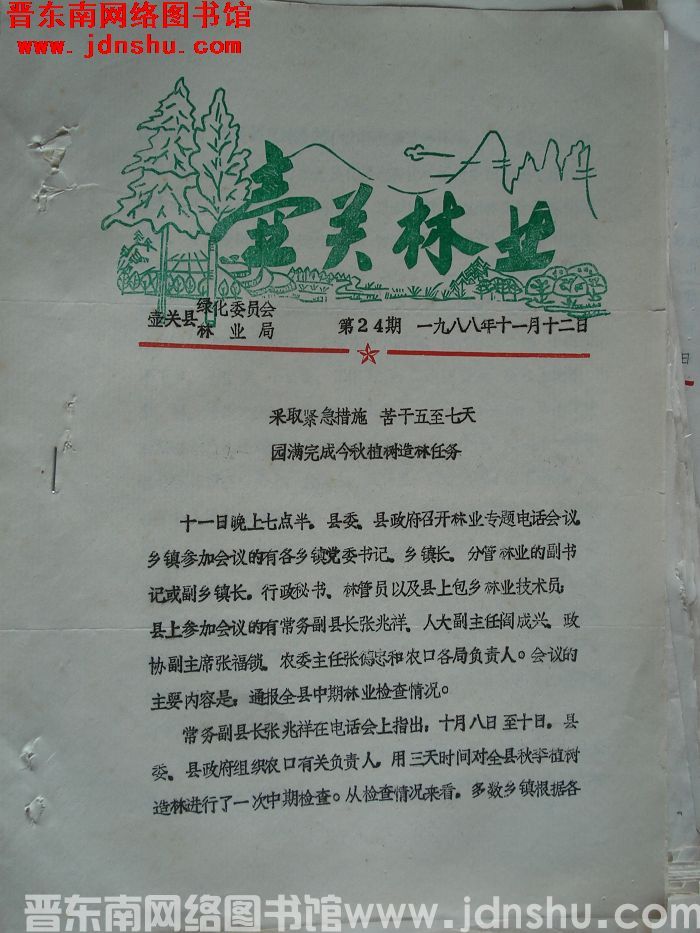 晋东南网络图书馆
www.jdnshu.com
壶关林业
壶关县 绿化委员会 林业局 第24期 一九八八年十一月十二日
采取紧急措施 苦干五至七天
园满完成今秋植树造林任务
十一日晚上七点半。县委、县政府召开林业专题电话会议。
乡镇参加会议的有各乡镇党委书记、乡镇长。分管林业的副书
记或副乡镇长。行政秘书、林管员以及县上包乡林业技术员;
县上参加会议的有常务副县长张兆祥、人大副主任阎成兴、政
协副主席张福锁、农委主任张德忠和农口各局负责人。会议的
主要内容是:通报全县中期林业检查情况。
常务副县长张兆祥在电话会上指出:十月八日至十日。县
委、县政府组织农口有关负责人。用三天时间对全县秋季植树
造林进行了一次中期检查。从检查情况来看。多数乡镇根据各
晋东南网络图书馆 www.jdnshu.com